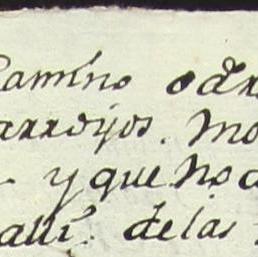 Camino o
arroyos. mo
y que no
alli. de las